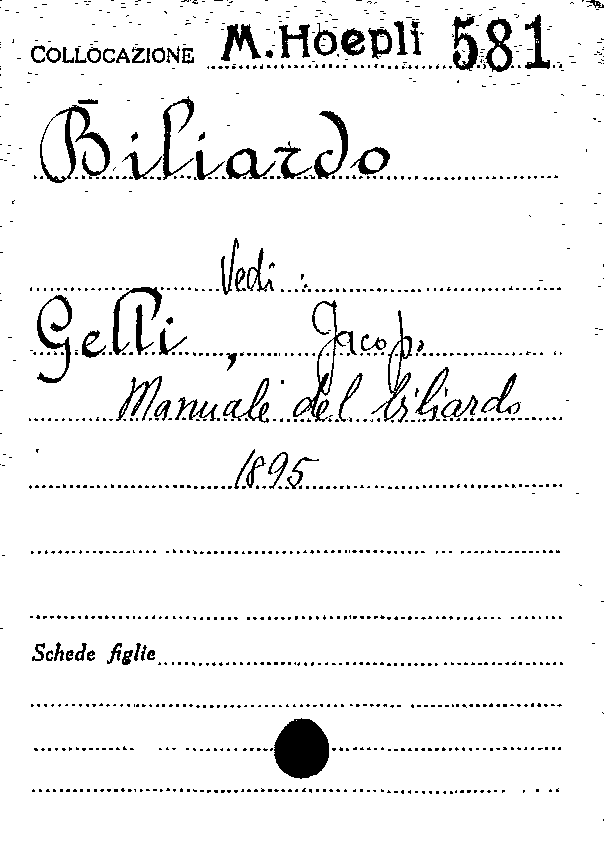 COLLOCAZIONE M. Hoepli 581
Biliardo
Vedi :
Gelli , Jacopo
Manuale del biliardo
1895
Schede figlie